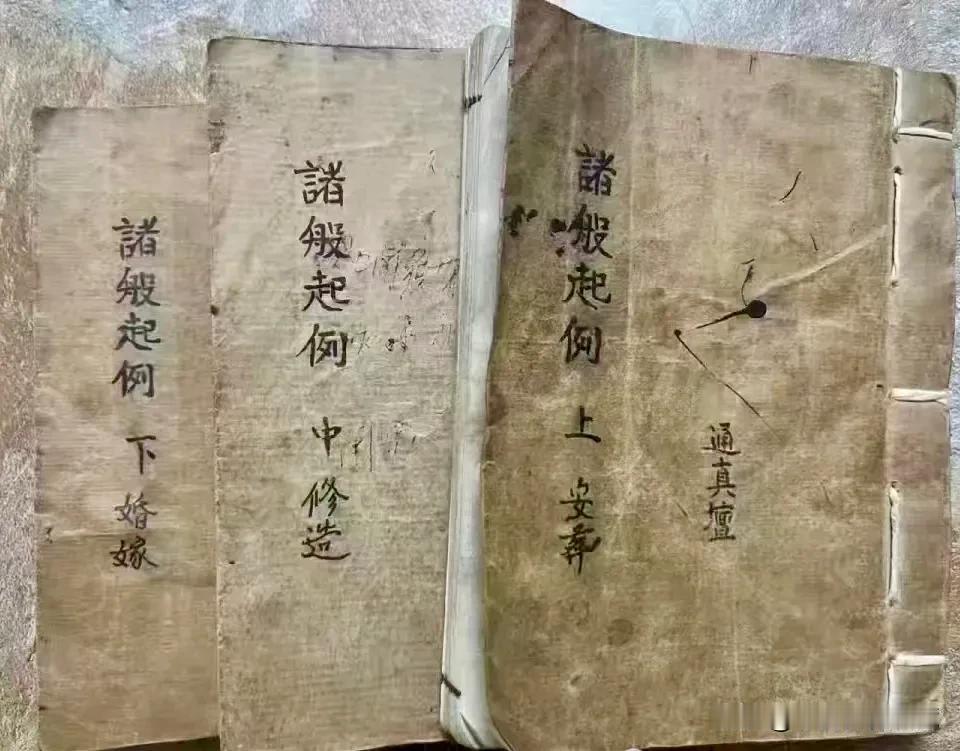 諸般起例 上 安葬
通真壇
諸般起例 中 修造
諸般起例 下 婚嫁